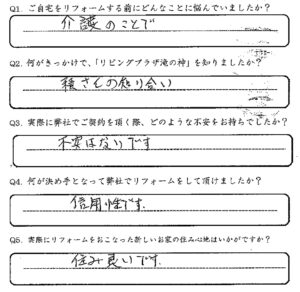 Q1. ご自宅をリフォームする前にどんなことに悩んでいましたか?
介護のことで
Q2. 何がきっかけで、「リビングプラザ滝の神」を知りましたか?
さんの知り合い
Q3. 実際に弊社でご契約を頂く際、どのような不安をお持ちでしたか?
不安はないです
Q4. 何が決め手となって弊社でリフォームをして頂けましたか?
信用性です.
Q5. 実際にリフォームをおこなった新しいお家の住み心地はいかがですか?
住み良いです.